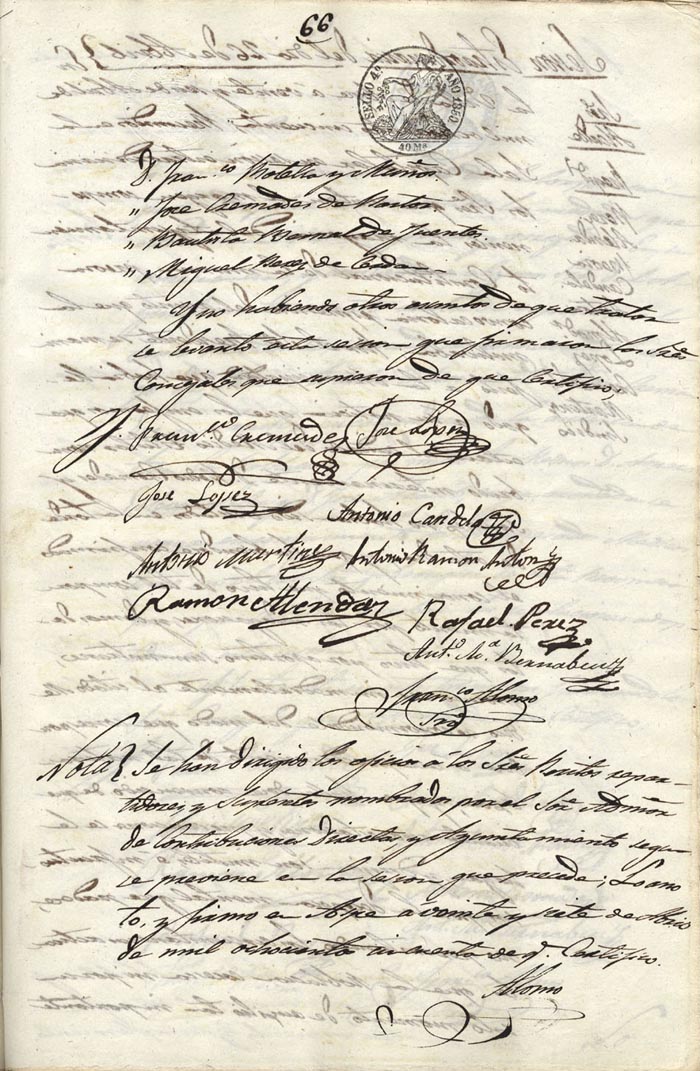 66
SELLO 4º AÑO 1850
40 Ms
D. Franco Botella y Muñoz
" Jose Cremades de Manton
" Bautista Bernal de Fuentes
" Miguel Perez de
Y no habiendo otros asuntos de que tratar
se levantó esta sesion que firmaron los Sres
Concejales que supieron de que Certifico;
Franco Cremades Jose Lopez
Jose Lopez
Antonio Candela
Antonio Martinez Antonio Ramon Anton
Ramon Alenda Rafael Perez
Anto Ma Bernabeu
Franco Alonso
Srio
Nota} Se han dirigido los oficios á los Sres Peritos repar-
tidores, y Suplentes nombrados por el Sor Admor
de Contribuciones Directas, y Ayuntamiento segun
se previene en la sesion que precede; Lo ano
to, y firmo en Aspe a veinte y siete de Abril
de mil ochocientos cincuenta de q. Certifico.
Alonso